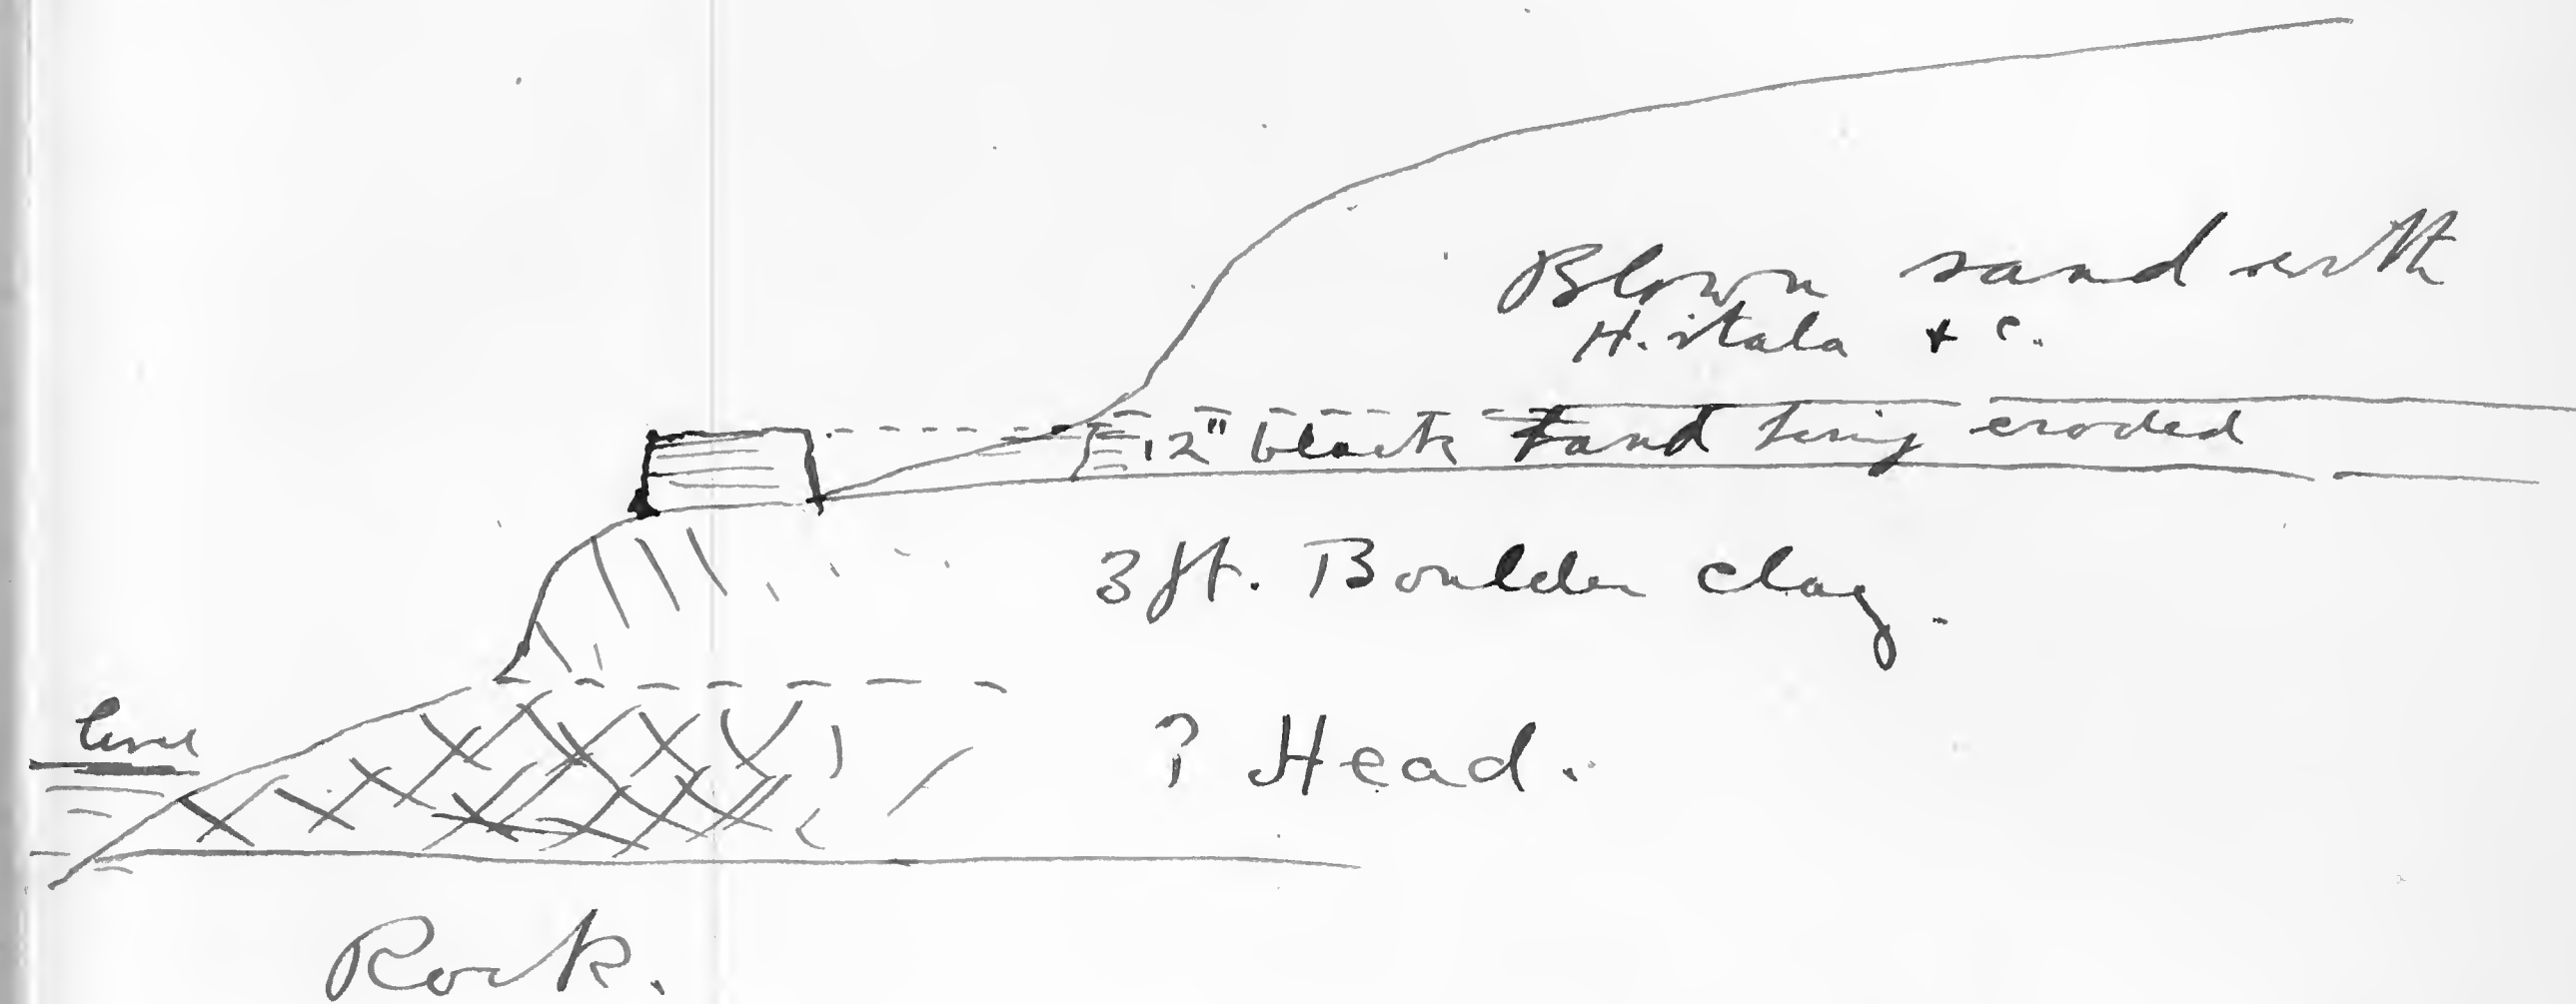 Blown sand with
H. itala & c.
12" black sand being eroded
3 ft. Boulder clay.
level
? Head.
Rock.